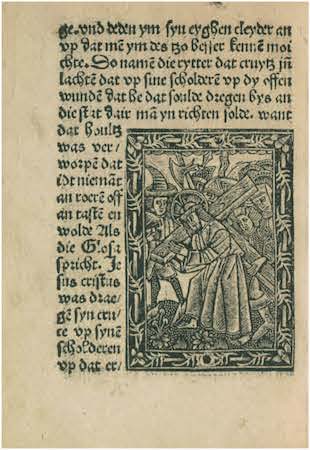 ge. vnd deden ym syn eyghen cleyder an
vp dat mẽ ym des tzo besser kennẽ moi
chte. Do namẽ die rytter dat cruytz jñ
lachtẽ dat vp sine scholderẽ vp dy offen
wundẽ dat he dat soulde dregen bys an
die stat dair ma yn richten solde. want
dat houltz
was ver/
worpẽ dat
idt niemãt
an roerẽ off
an tastẽ en
wolde Als
die Glosa
spricht. Je
sus cristus
was drae
gẽ syn cru
te vp synẽ
scholderen
vp dat er/